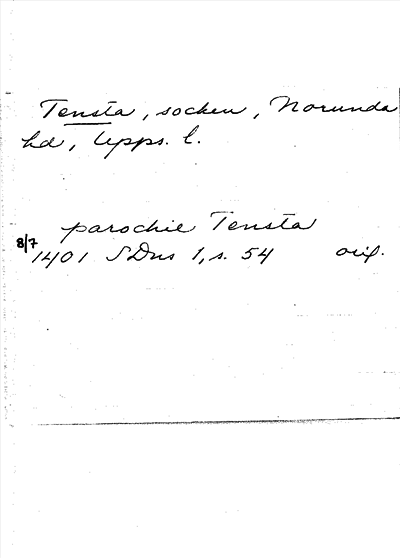 Tensta, socken, Norunda
hd, Upps. l.
parochie Tensta
8/7
1401 SDns 1, s. 54 orig.